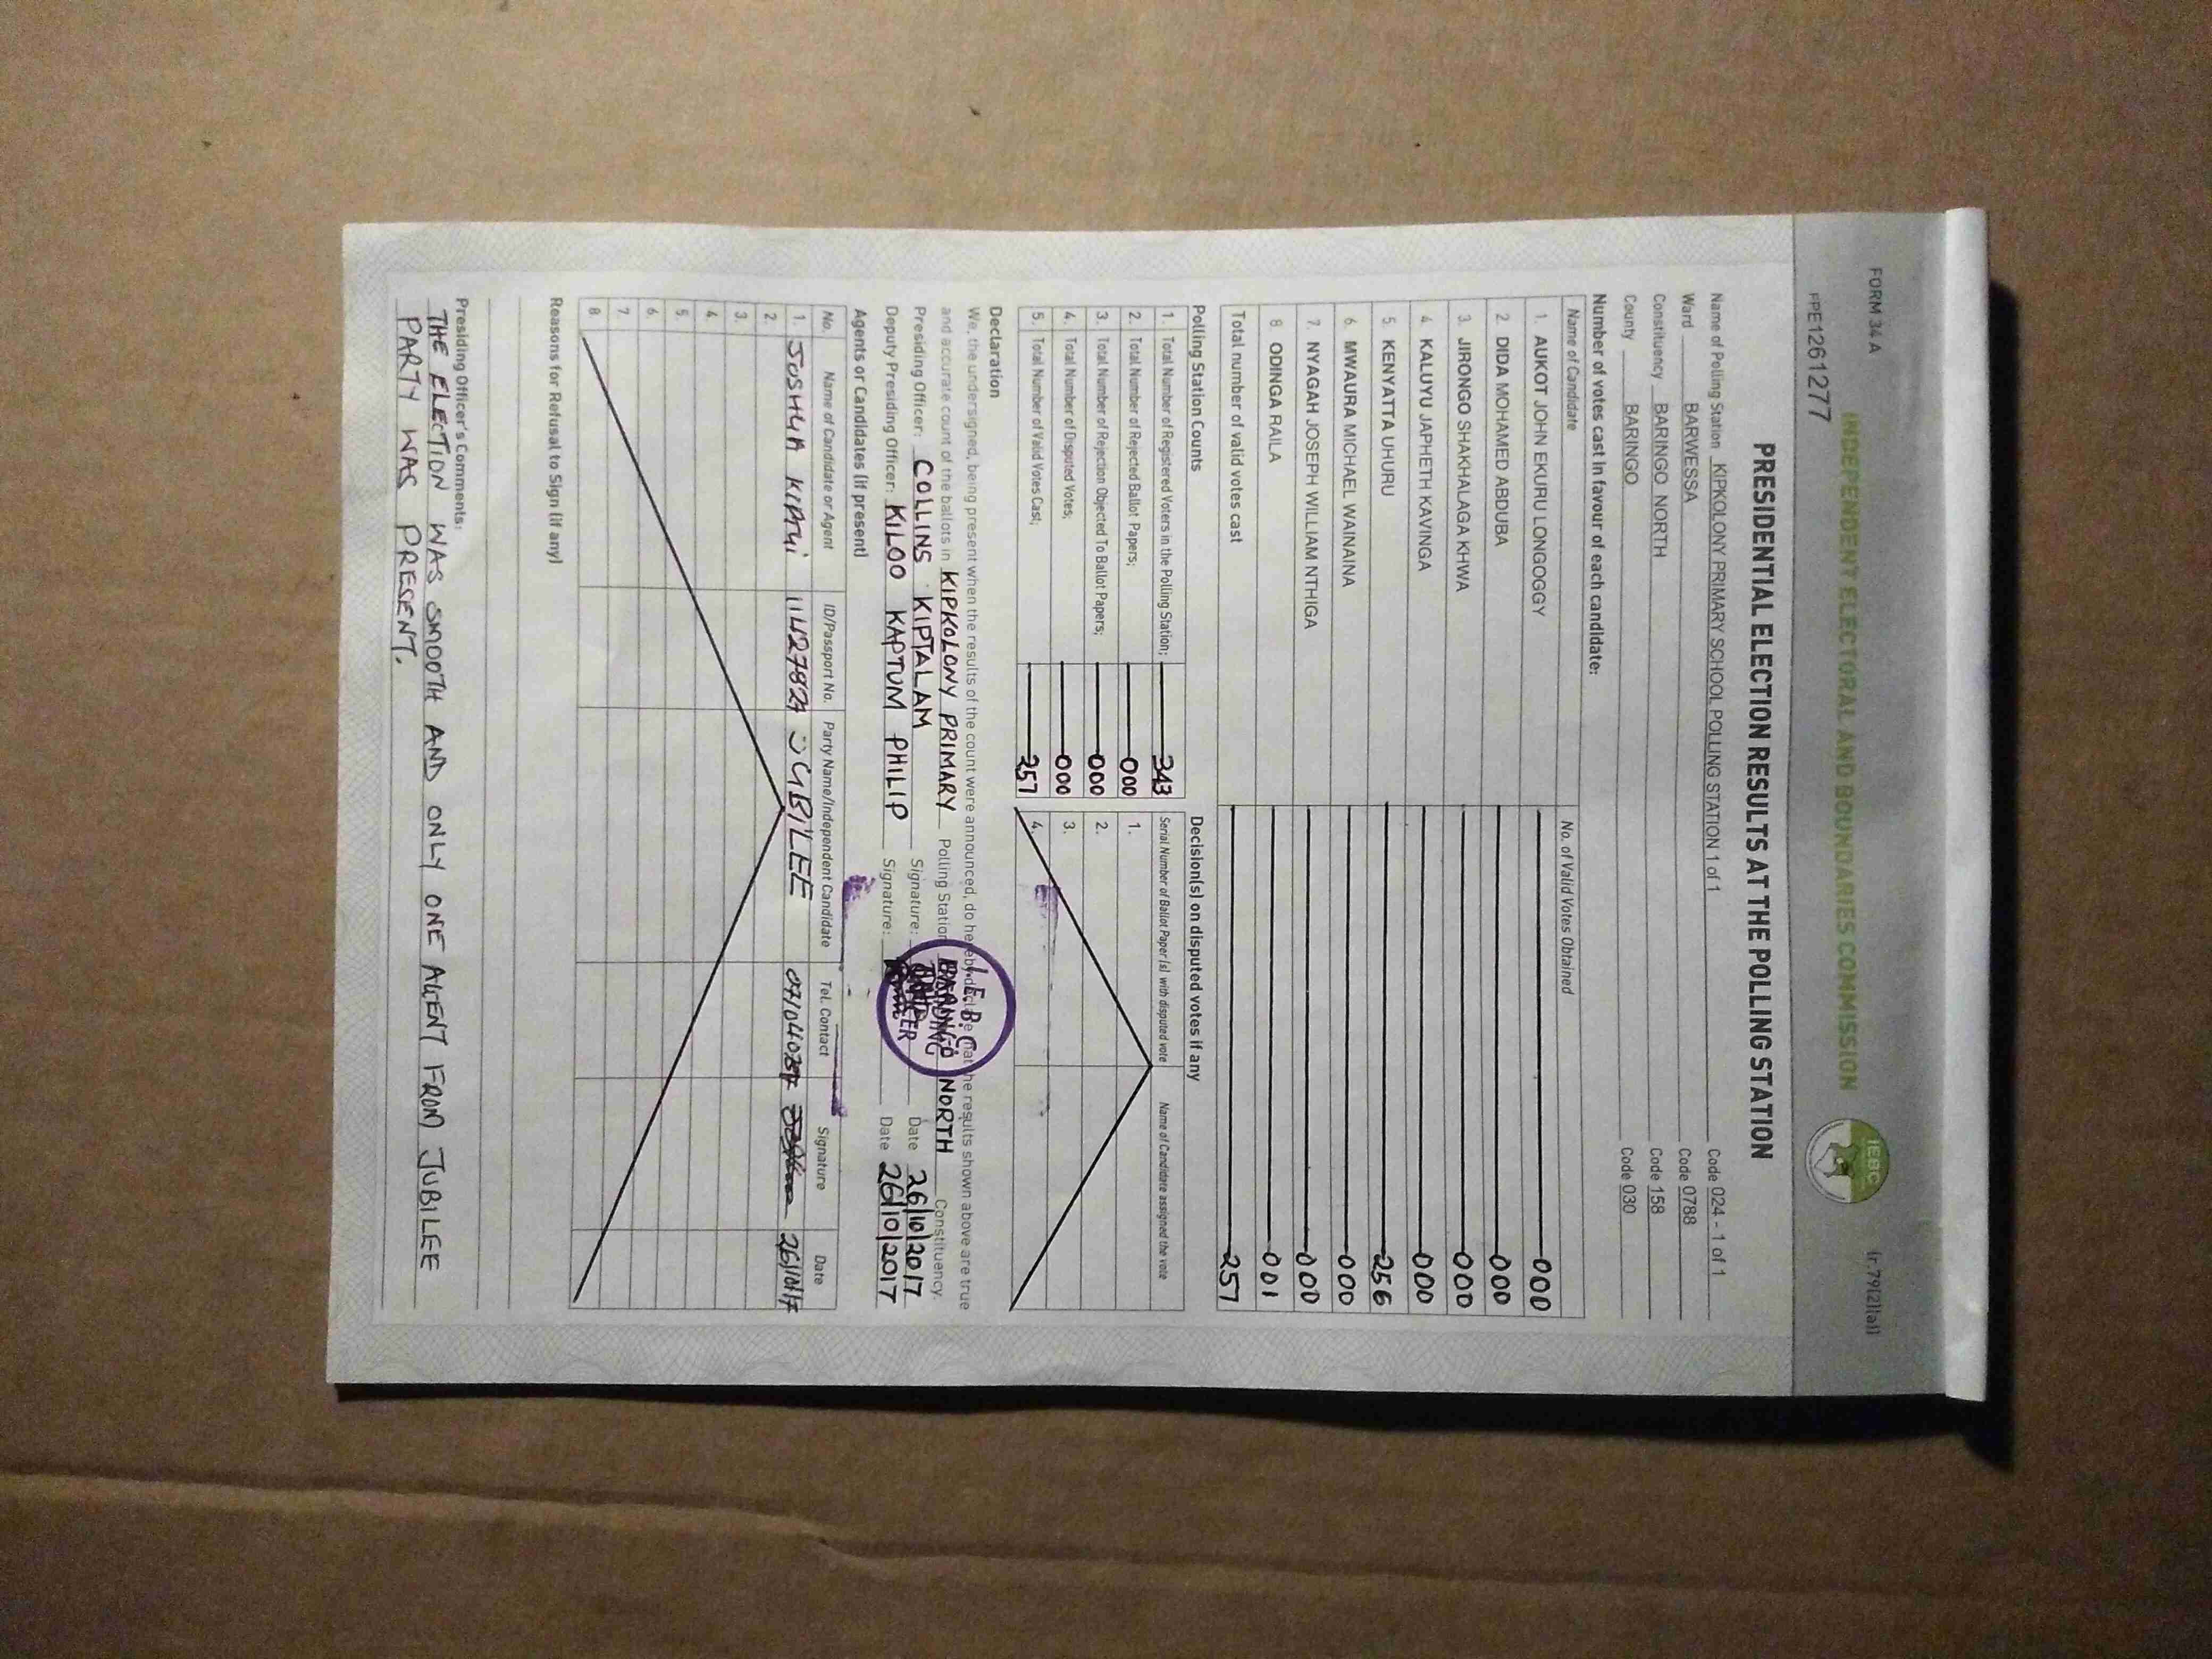 FORM 34 A
(r.79(2)(a))
INDEPENDENT ELECTORAL AND BOUNDARIES COMMISSION
IEBC
FPE1261277
PRESIDENTIAL ELECTION RESULTS AT THE POLLING STATION
Name of Polling Station KIPKOLONY PRIMARY SCHOOL POLLING STATION 1 of 1 Code 024 - 1 of 1
Ward BARWESSA Code 0788
Constituency BARINGO NORTH Code 158
County BARINGO Code 030
Number of votes cast in favour of each candidate:
Name of Candidate No. of Valid Votes Obtained
1. AUKOT JOHN EKURU LONGOGGY 000
2. DIDA MOHAMED ABDUBA 000
3. JIRONGO SHAKHALAGA KHWA 000
4. KALUYU JAPHETH KAVINGA 000
5. KENYATTA UHURU 256
6. MWAURA MICHAEL WAINAINA 000
7. NYAGAH JOSEPH WILLIAM NTHIGA 000
8. ODINGA RAILA 001
Total number of valid votes cast 257
Polling Station Counts
1. Total Number of Registered Voters in the Polling Station; 343
2. Total Number of Rejected Ballot Papers; 000
3. Total Number of Rejection Objected To Ballot Papers; 000
4. Total Number of Disputed Votes; 000
5. Total Number of Valid Votes Cast; 257
Decision(s) on disputed votes if any
Serial Number of Ballot Paper(s) with disputed vote Name of Candidate assigned the vote
1.
2.
3.
4.
Declaration
We, the undersigned, being present when the results of the count were announced, do hereby declare that the results shown above are true
and accurate count of the ballots in KIPKOLONY PRIMARY Polling Station BARINGO NORTH Constituency.
Presiding Officer: COLLINS KIPTALAM Signature: Date 26/10/2017
Deputy Presiding Officer: KILOO KAPTUM PHILIP Signature: Date 26/10/2017
I.E.B.C
Agents or Candidates (if present)
No. Name of Candidate or Agent ID/Passport No. Party Name/Independent Candidate Tel. Contact Signature Date
1. JOSHUA KIPTUI JUBILEE 26/10/17
2.
3.
4.
5.
6.
7.
8.
Reasons for Refusal to Sign (if any)
Presiding Officer's Comments:
THE ELECTION WAS SMOOTH AND ONLY ONE AGENT FROM JUBILEE
PARTY WAS PRESENT.